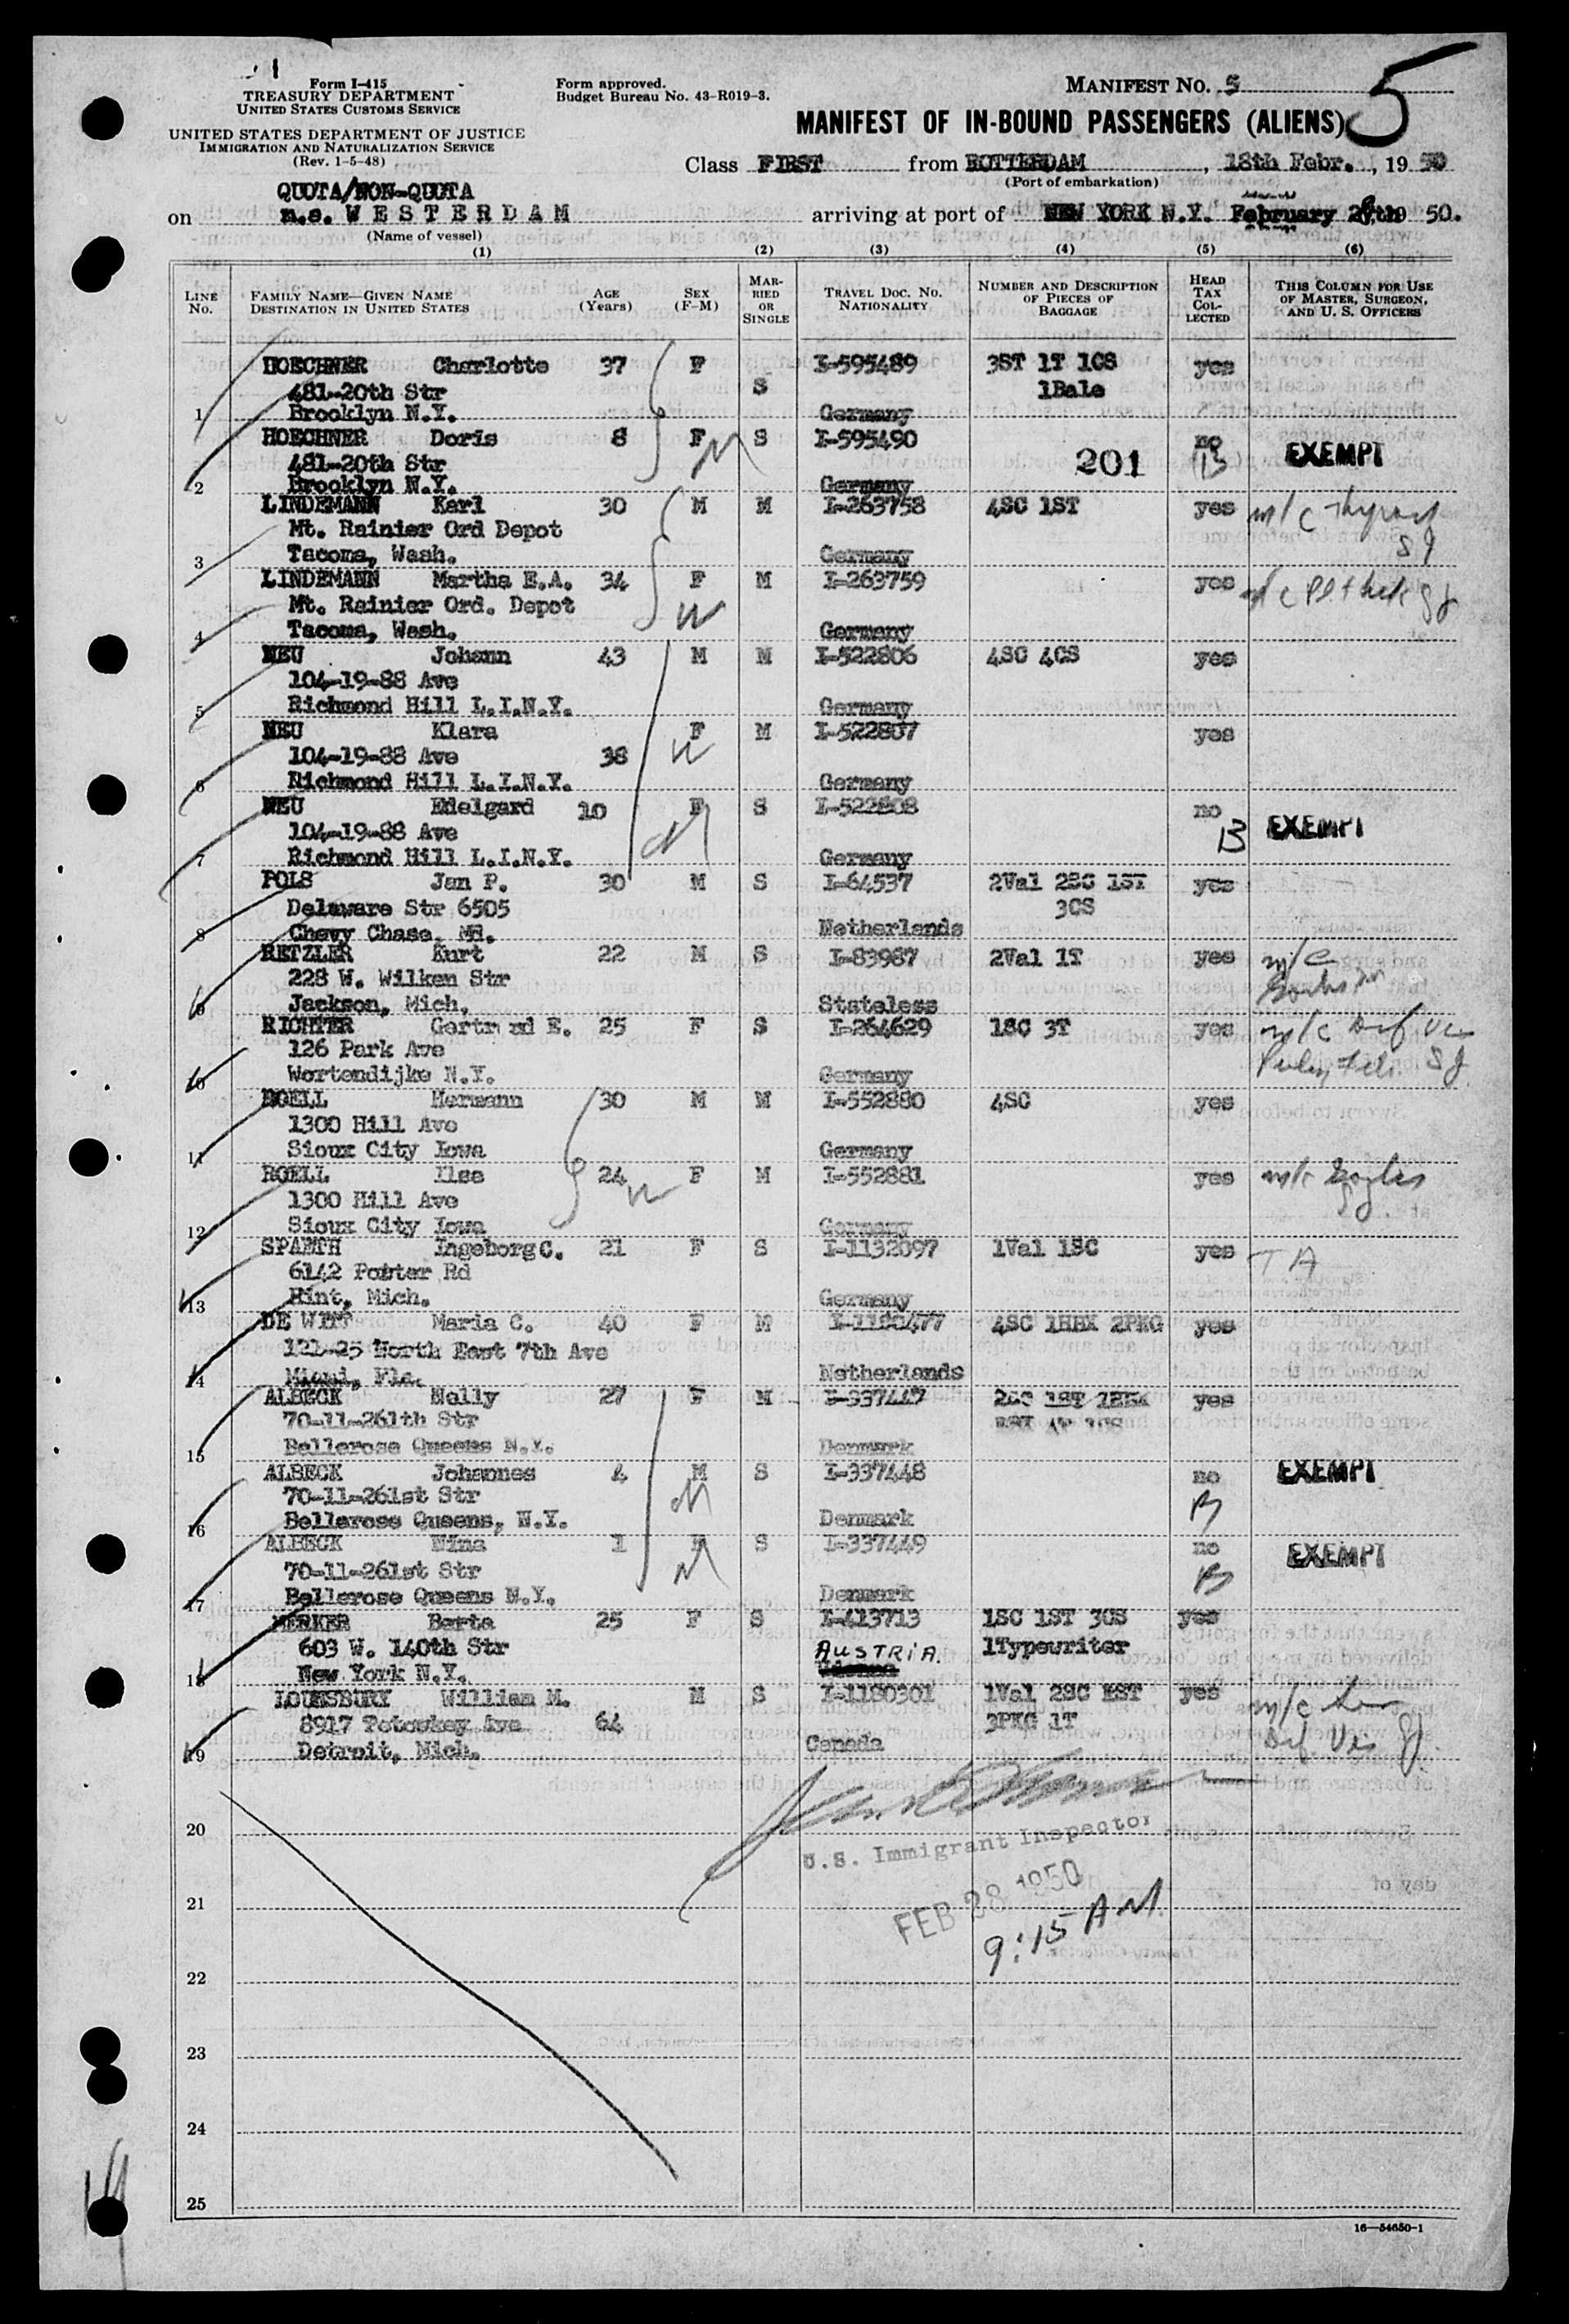 Form I-415
TREASURY DEPARTMENT
UNITED STATES CUSTOMS SERVICE
UNITED STATES DEPARTMENT OF JUSTICE
IMMIGRATION AND NATURALIZATION SERVICE
(Rev. 1-5-48)
Form approved.
Budget Bureau No. 43-R019-3.
MANIFEST NO. 5
5
MANIFEST OF IN-BOUND PASSENGERS (ALIENS)
Class FIRST from ROTTERDAM, 18th Febr., 1950
(Port of embarkation)
QUOTA/NON-QUOTA
on m.s. WESTERDAM arriving at port of NEW YORK N.Y. February 28th 1950.
(Name of vessel)
(1) (2) (3) (4) (5) (6)
LINE No. FAMILY NAME—GIVEN NAME DESTINATION IN UNITED STATES AGE (Years) SEX (F-M) MARRIED OR SINGLE TRAVEL DOC. NO. NATIONALITY NUMBER AND DESCRIPTION OF PIECES OF BAGGAGE HEAD TAX COLLECTED THIS COLUMN FOR USE OF MASTER, SURGEON, AND U. S. OFFICERS
HOECHNER Charlotte 37 F S I-595489 3ST 1T 1CS yes
481-20th Str 1Bale
1 Brooklyn N.Y. Germany
HOECHNER Doris 8 F S I-595490 no EXEMPT
481-20th Str 201 13
2 Brooklyn N.Y. Germany
LINDEMANN Karl 30 M M I-263758 4SC 1ST yes m/c
Mt. Rainier Ord Depot
3 Tacoma, Wash. Germany
LINDEMANN Martha E.A. 34 F M I-263759 yes
Mt. Rainier Ord. Depot
4 Tacoma, Wash. Germany
NEU Johann 43 M M I-522806 4SC 4CS yes
104-19-88 Ave
5 Richmond Hill L.I.N.Y. Germany
NEU Klara F M I-522807 yes
104-19-88 Ave 38
6 Richmond Hill L.I.N.Y. Germany
NEU Edelgard 10 F S I-522808 no
104-19-88 Ave 13 EXEMPT
7 Richmond Hill L.I.N.Y. Germany
POLS Jan P. 30 M S I-64537 2Val 2SC 1ST yes
Delaware Str 6505 3CS
8 Chevy Chase, Md. Netherlands
RETZLER Kurt 22 M S I-83987 2Val 1T yes m/c
228 W. Wilken Str
9 Jackson, Mich. Stateless
RICHTER Gertrud E. 25 F S I-264629 1SC 3T yes m/c
126 Park Ave
10 Wortendijke N.Y. Germany
ROELL Hermann 30 M M I-552880 4SC yes
1300 Hill Ave
11 Sioux City Iowa Germany
ROELL Ilse 24 F M I-552881 yes m/c
1300 Hill Ave
12 Sioux City Iowa Germany
SPAETH Ingeborg C. 21 F S I-1132097 1Val 1SC yes TA
6142 Potter Rd
13 Flint, Mich. Germany
DE WITT Maria C. 40 F M 4SC 1HBX 2PKG yes
121-25 North East 7th Ave
14 Miami, Fla. Netherlands
ALBECK Nelly 27 F M I-337447 yes
70-11-261th Str
15 Bellerose Queens N.Y. Denmark
ALBECK Johannes 4 M S I-337448 no EXEMPT
70-11-261st Str
16 Bellerose Queens, N.Y. Denmark
ALBECK Nina 1 F S I-337449 no EXEMPT
70-11-261st Str
17 Bellerose Queens N.Y. Denmark
MERKER Berta 25 F S I-413713 1SC 1ST 3CS yes
603 W. 140th Str AUSTRIA. 1Typewriter
18 New York N.Y.
LOUNSBURY William M. M S I-1180301 1Val 2SC EST yes m/c
8917 Petoskey Ave 64 3PKG 1T
19 Detroit, Mich. Canada
20
U.S. Immigrant Inspector
21
FEB 28 1950
9:15 AM
22
23
24
25
16—54650-1